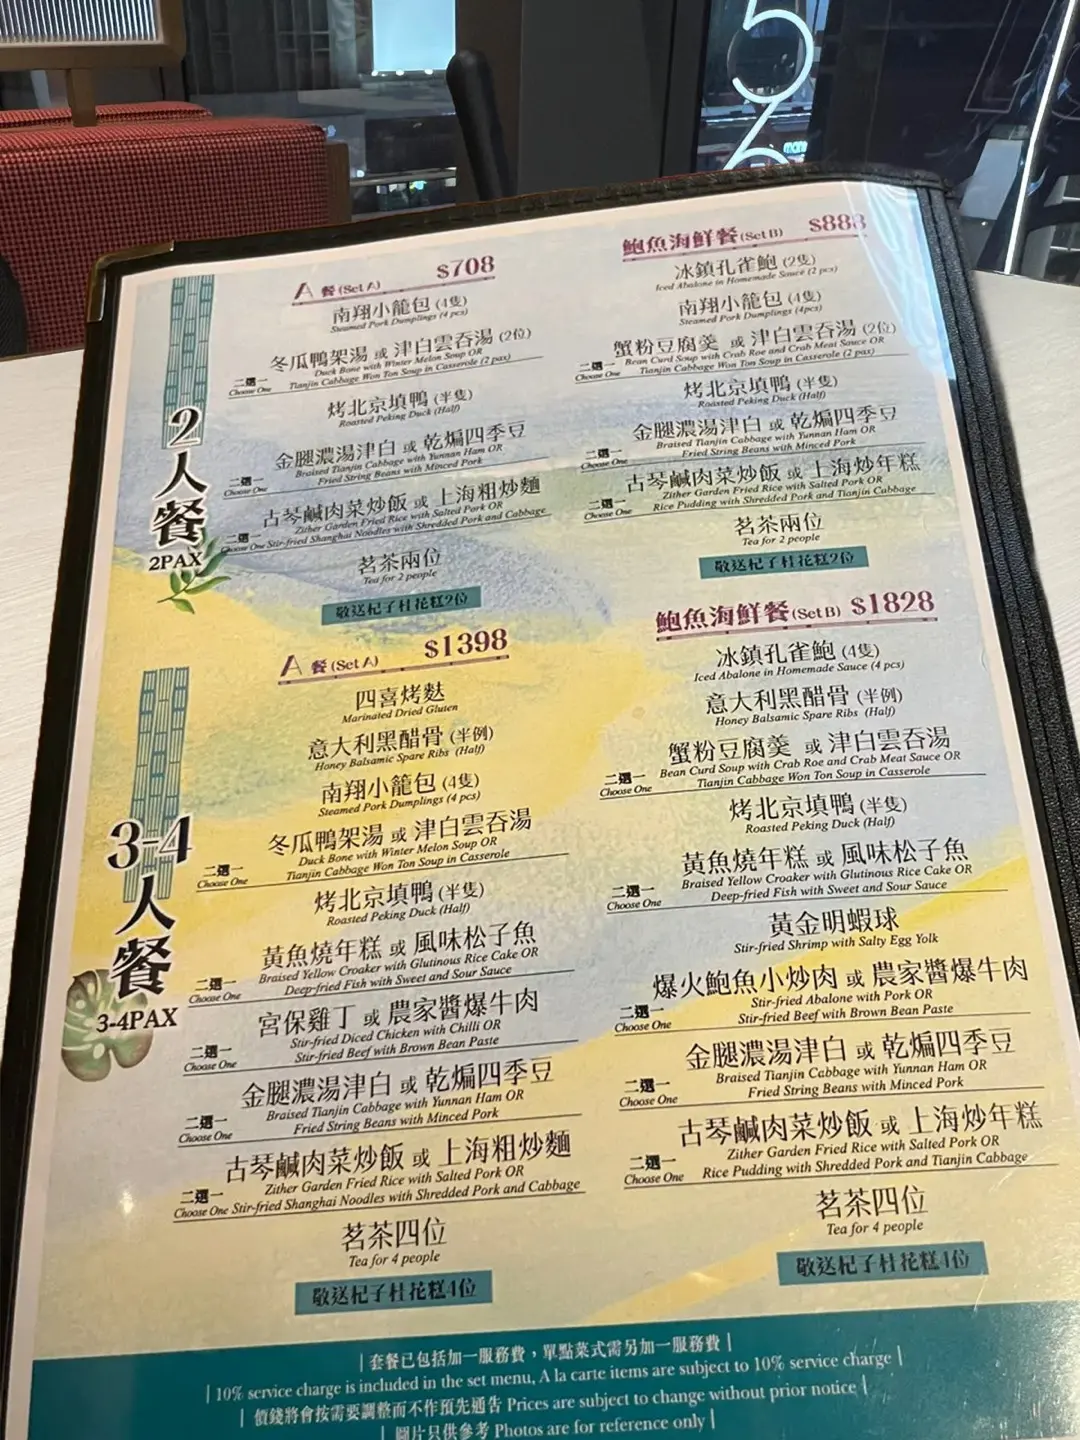 2人餐
2PAX
A 餐 (Set A) $708
南翔小籠包 (4隻)
Steamed Pork Dumplings (4 pcs)
冬瓜鴨架湯 或 津白雲吞湯 (2位)
Duck Bone with Winter Melon Soup OR
二選一 Choose One
Tianjin Cabbage Won Ton Soup in Casserole (2 pax)
烤北京填鴨 (半隻)
Roasted Peking Duck (Half)
金腿濃湯津白 或 乾煸四季豆
Braised Tianjin Cabbage with Yunnan Ham OR
二選一 Choose One
Fried String Beans with Minced Pork
古琴鹹肉菜炒飯 或 上海粗炒麵
Zither Garden Fried Rice with Salted Pork OR
二選一 Choose One
Stir-fried Shanghai Noodles with Shredded Pork and Cabbage
茗茶兩位
Tea for 2 people
敬送杞子桂花糕2位
鮑魚海鮮餐 (Set B) $888
冰鎮孔雀鮑 (2隻)
Iced Abalone in Homemade Sauce (2 pcs)
南翔小籠包 (4隻)
Steamed Pork Dumplings (4pcs)
蟹粉豆腐羹 或 津白雲吞湯 (2位)
Bean Curd Soup with Crab Roe and Crab Meat Sauce OR
二選一 Choose One
Tianjin Cabbage Won Ton Soup in Casserole (2 pax)
烤北京填鴨 (半隻)
Roasted Peking Duck (Half)
金腿濃湯津白 或 乾煸四季豆
Braised Tianjin Cabbage with Yunnan Ham OR
二選一 Choose One
Fried String Beans with Minced Pork
古琴鹹肉菜炒飯 或 上海炒年糕
Zither Garden Fried Rice with Salted Pork OR
二選一 Choose One
Rice Pudding with Shredded Pork and Tianjin Cabbage
茗茶兩位
Tea for 2 people
敬送杞子桂花糕2位
3-4人餐
3-4PAX
A 餐 (Set A) $1398
四喜烤麩
Marinated Dried Gluten
意大利黑醋骨 (半例)
Honey Balsamic Spare Ribs (Half)
南翔小籠包 (4隻)
Steamed Pork Dumplings (4 pcs)
冬瓜鴨架湯 或 津白雲吞湯
Duck Bone with Winter Melon Soup OR
二選一 Choose One
Tianjin Cabbage Won Ton Soup in Casserole
烤北京填鴨 (半隻)
Roasted Peking Duck (Half)
黃魚燒年糕 或 風味松子魚
Braised Yellow Croaker with Glutinous Rice Cake OR
二選一 Choose One
Deep-fried Fish with Sweet and Sour Sauce
宮保雞丁 或 農家醬爆牛肉
Stir-fried Diced Chicken with Chilli OR
二選一 Choose One
Stir-fried Beef with Brown Bean Paste
金腿濃湯津白 或 乾煸四季豆
Braised Tianjin Cabbage with Yunnan Ham OR
二選一 Choose One
Fried String Beans with Minced Pork
古琴鹹肉菜炒飯 或 上海粗炒麵
Zither Garden Fried Rice with Salted Pork OR
二選一 Choose One
Stir-fried Shanghai Noodles with Shredded Pork and Cabbage
茗茶四位
Tea for 4 people
敬送杞子桂花糕4位
鮑魚海鮮餐 (Set B) $1828
冰鎮孔雀鮑 (4隻)
Iced Abalone in Homemade Sauce (4 pcs)
意大利黑醋骨 (半例)
Honey Balsamic Spare Ribs (Half)
蟹粉豆腐羹 或 津白雲吞湯
Bean Curd Soup with Crab Roe and Crab Meat Sauce OR
二選一 Choose One
Tianjin Cabbage Won Ton Soup in Casserole
烤北京填鴨 (半隻)
Roasted Peking Duck (Half)
黃魚燒年糕 或 風味松子魚
Braised Yellow Croaker with Glutinous Rice Cake OR
二選一 Choose One
Deep-fried Fish with Sweet and Sour Sauce
黃金明蝦球
Stir-fried Shrimp with Salty Egg Yolk
爆火鮑魚小炒肉 或 農家醬爆牛肉
Stir-fried Abalone with Pork OR
二選一 Choose One
Stir-fried Beef with Brown Bean Paste
金腿濃湯津白 或 乾煸四季豆
Braised Tianjin Cabbage with Yunnan Ham OR
二選一 Choose One
Fried String Beans with Minced Pork
古琴鹹肉菜炒飯 或 上海炒年糕
Zither Garden Fried Rice with Salted Pork OR
二選一 Choose One
Rice Pudding with Shredded Pork and Tianjin Cabbage
茗茶四位
Tea for 4 people
敬送杞子桂花糕4位
| 套餐已包括加一服務費，單點菜式需另加一服務費 |
| 10% service charge is included in the set menu, A la carte items are subject to 10% service charge |
| 價錢將會按需要調整而不作預先通告 Prices are subject to change without prior notice |
| 圖片只供參考 Photos are for reference only |